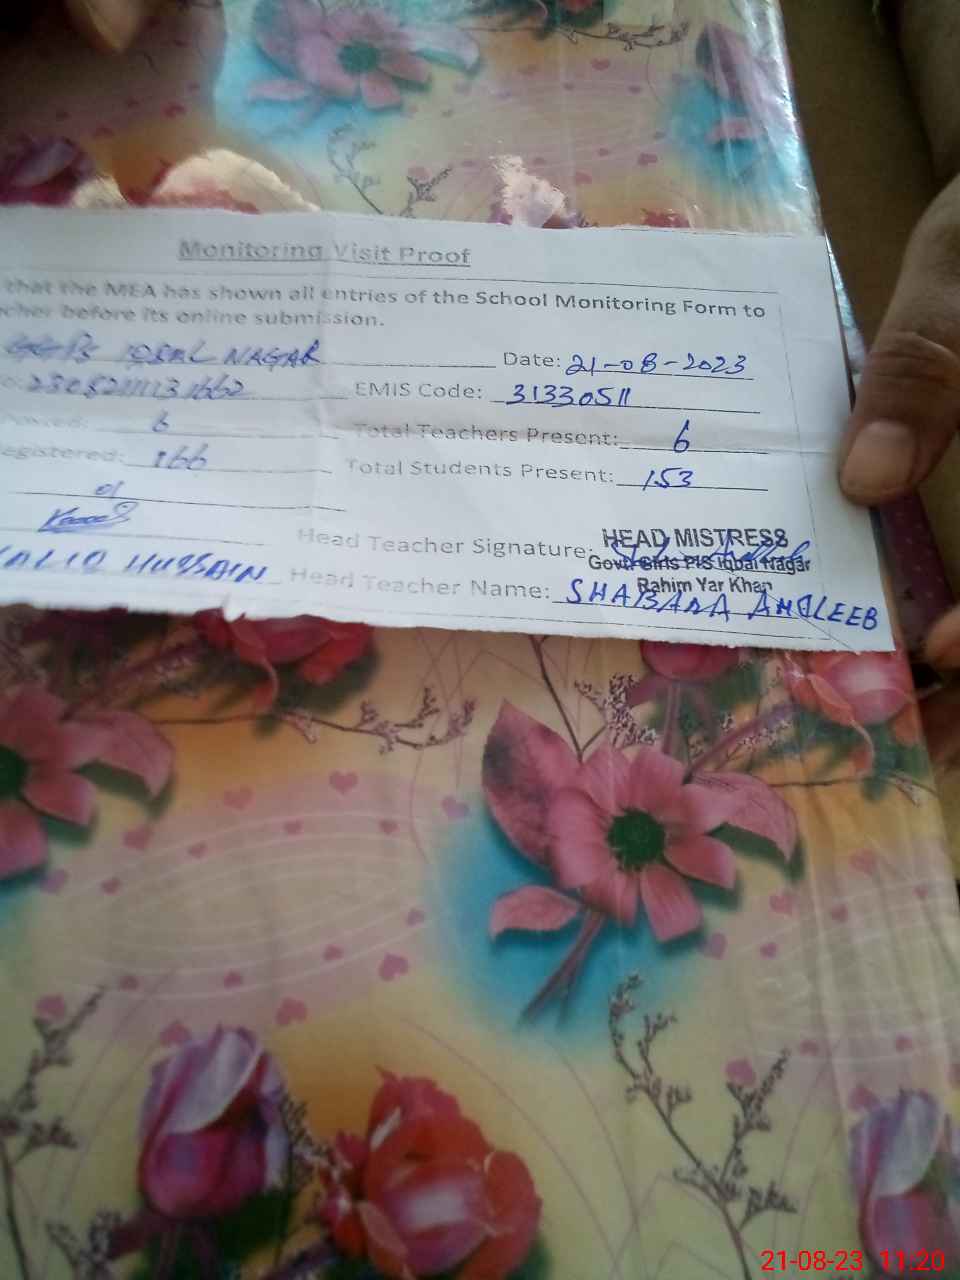 Monitoring Visit Proof
that the MEA has shown all entries of the School Monitoring Form to
cher before its online submission.
IQBAL NAGAR Date: 21-08-2023
EMIS Code: 31330511
6 Total Teachers Present: 6
egistered: 166 Total Students Present: 153
01
Head Teacher Signature: HEAD MISTRESS
Govt: Girls P/S Iqbal Nagar
Rahim Yar Khan
HUSSAIN Head Teacher Name: SHABANA ANDLEEB
21-08-23 11:20